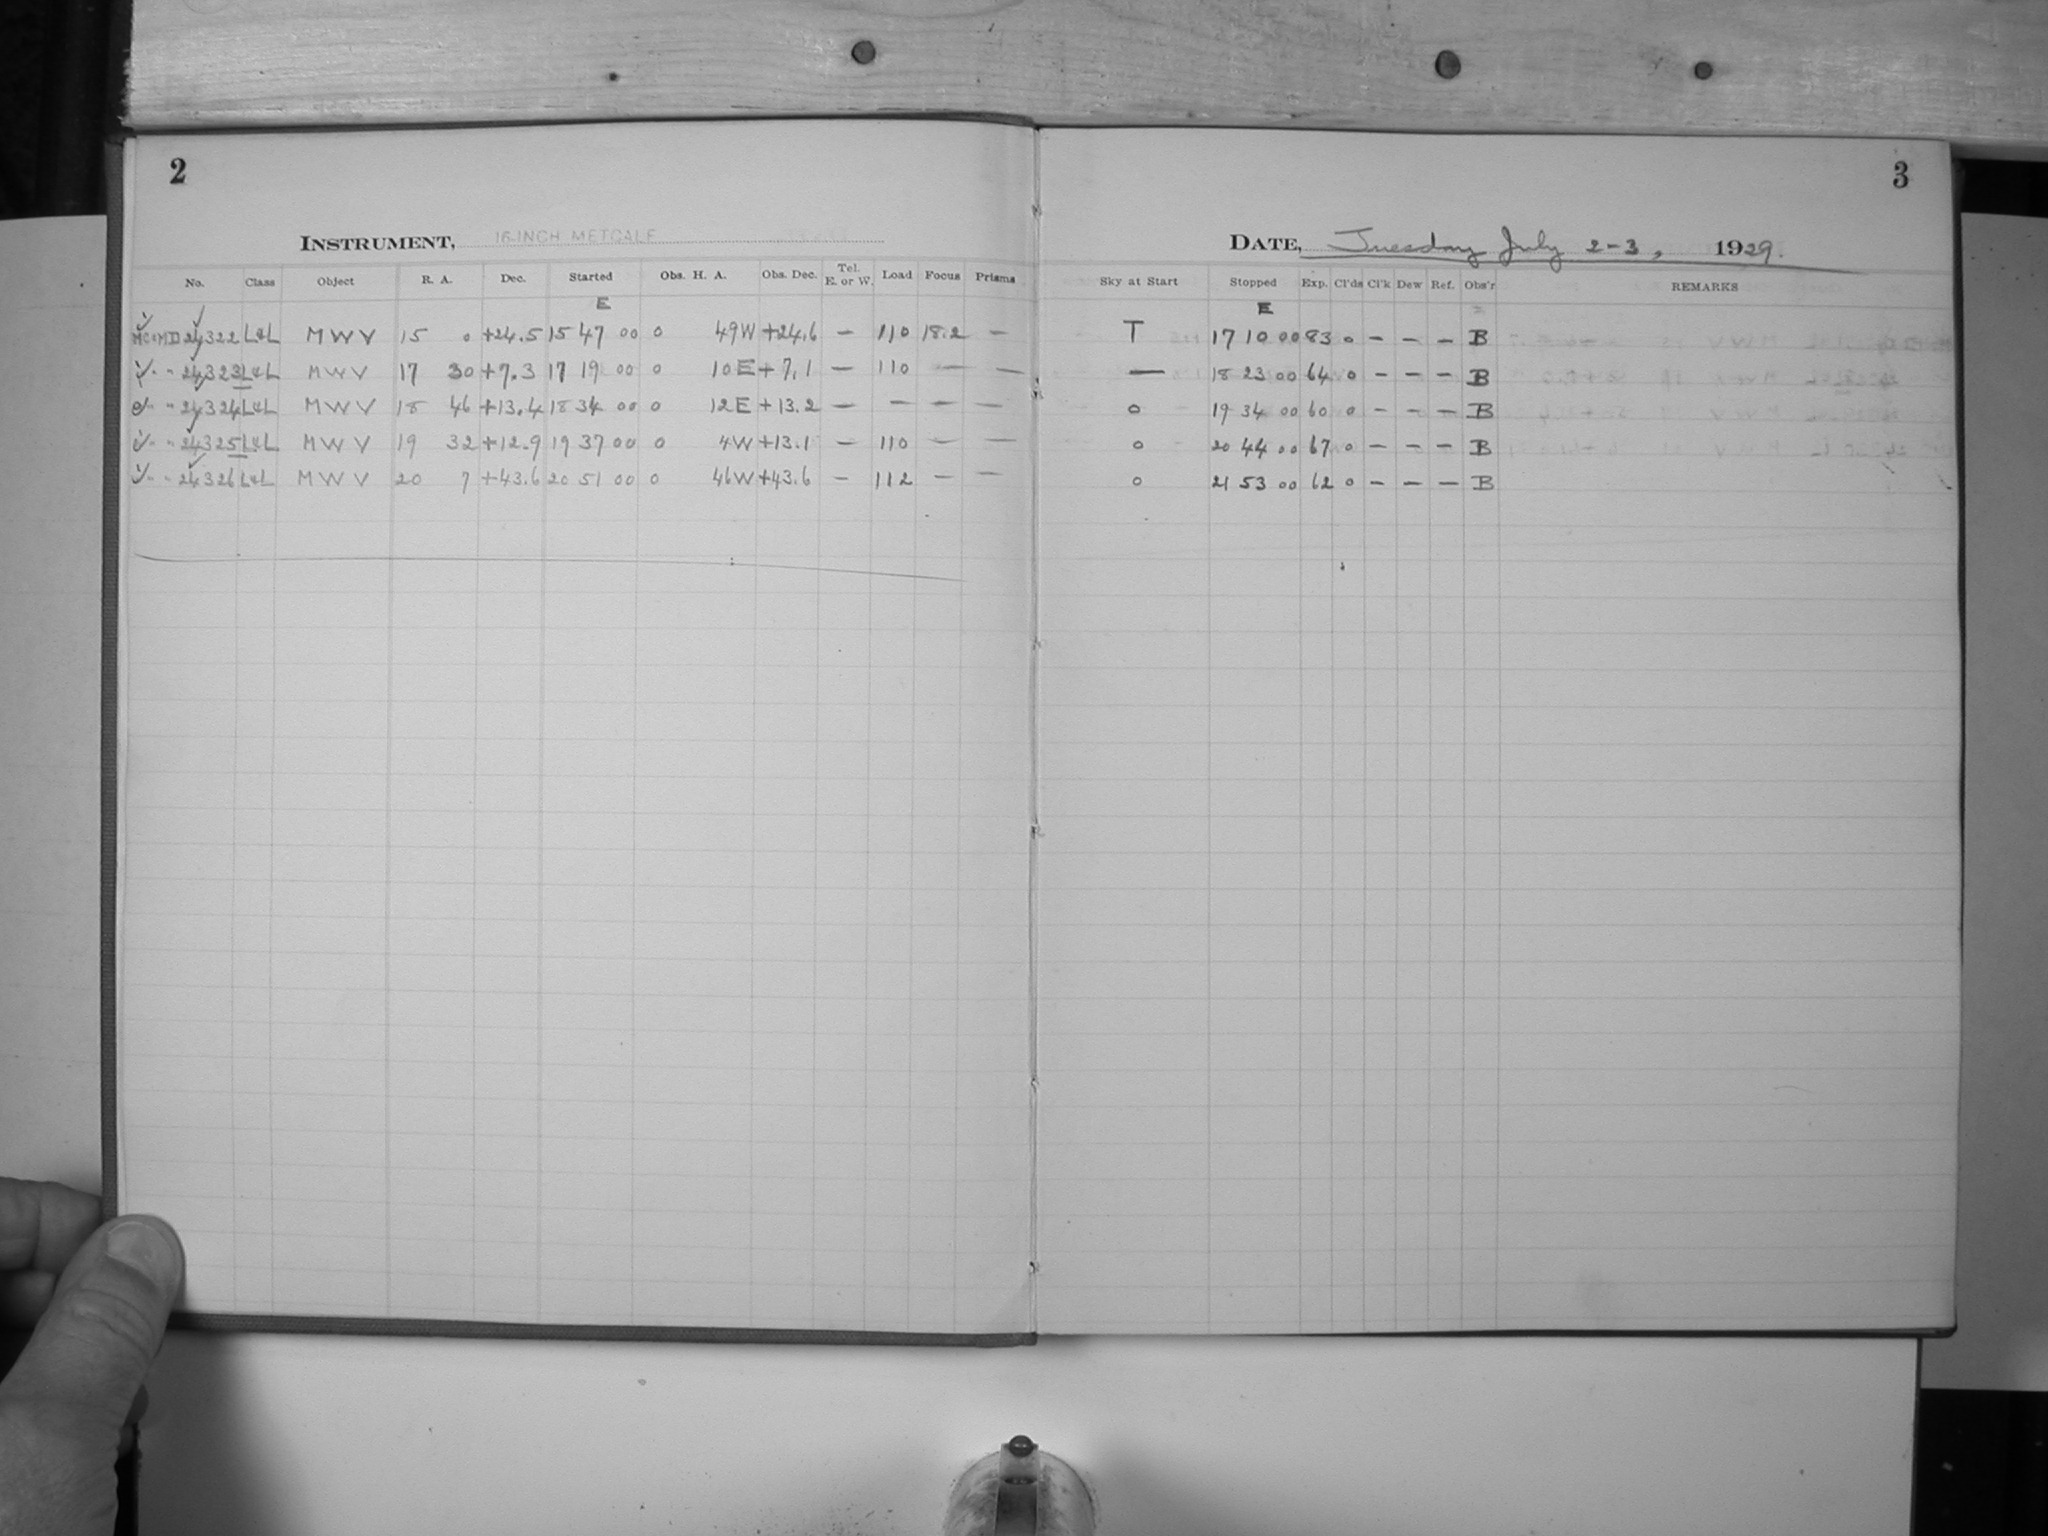 2
INSTRUMENT, 16-INCH METCALF
No. Class Object R. A. Dec. Started Obs. H. A. Obs. Dec. Tel. E. or W. Load Focus Prisms
E
24322 L&L M W V 15 0 +24.5 15 47 00 0 49W +24.6 — 110 18.2 —
" " 24323 L&L M W V 17 30 +7.3 17 19 00 0 10E +7.1 — 110 — —
" " 24324 L&L M W V 18 46 +13.4 18 34 00 0 12E +13.2 — — — —
" " 24325 L&L M W V 19 32 +12.9 19 37 00 0 4W +13.1 — 110 — —
" " 24326 L&L M W V 20 7 +43.6 20 51 00 0 46W +43.6 — 112 — —
3
DATE, Tuesday July 2-3, 1929.
Sky at Start Stopped Exp. Cl'ds Cl'k Dew Ref. Obs'r REMARKS
E
T 17 10 00 83 0 — — — B
— 18 23 00 64 0 — — — B
0 19 34 00 60 0 — — — B
0 20 44 00 67 0 — — — B
0 21 53 00 62 0 — — — B